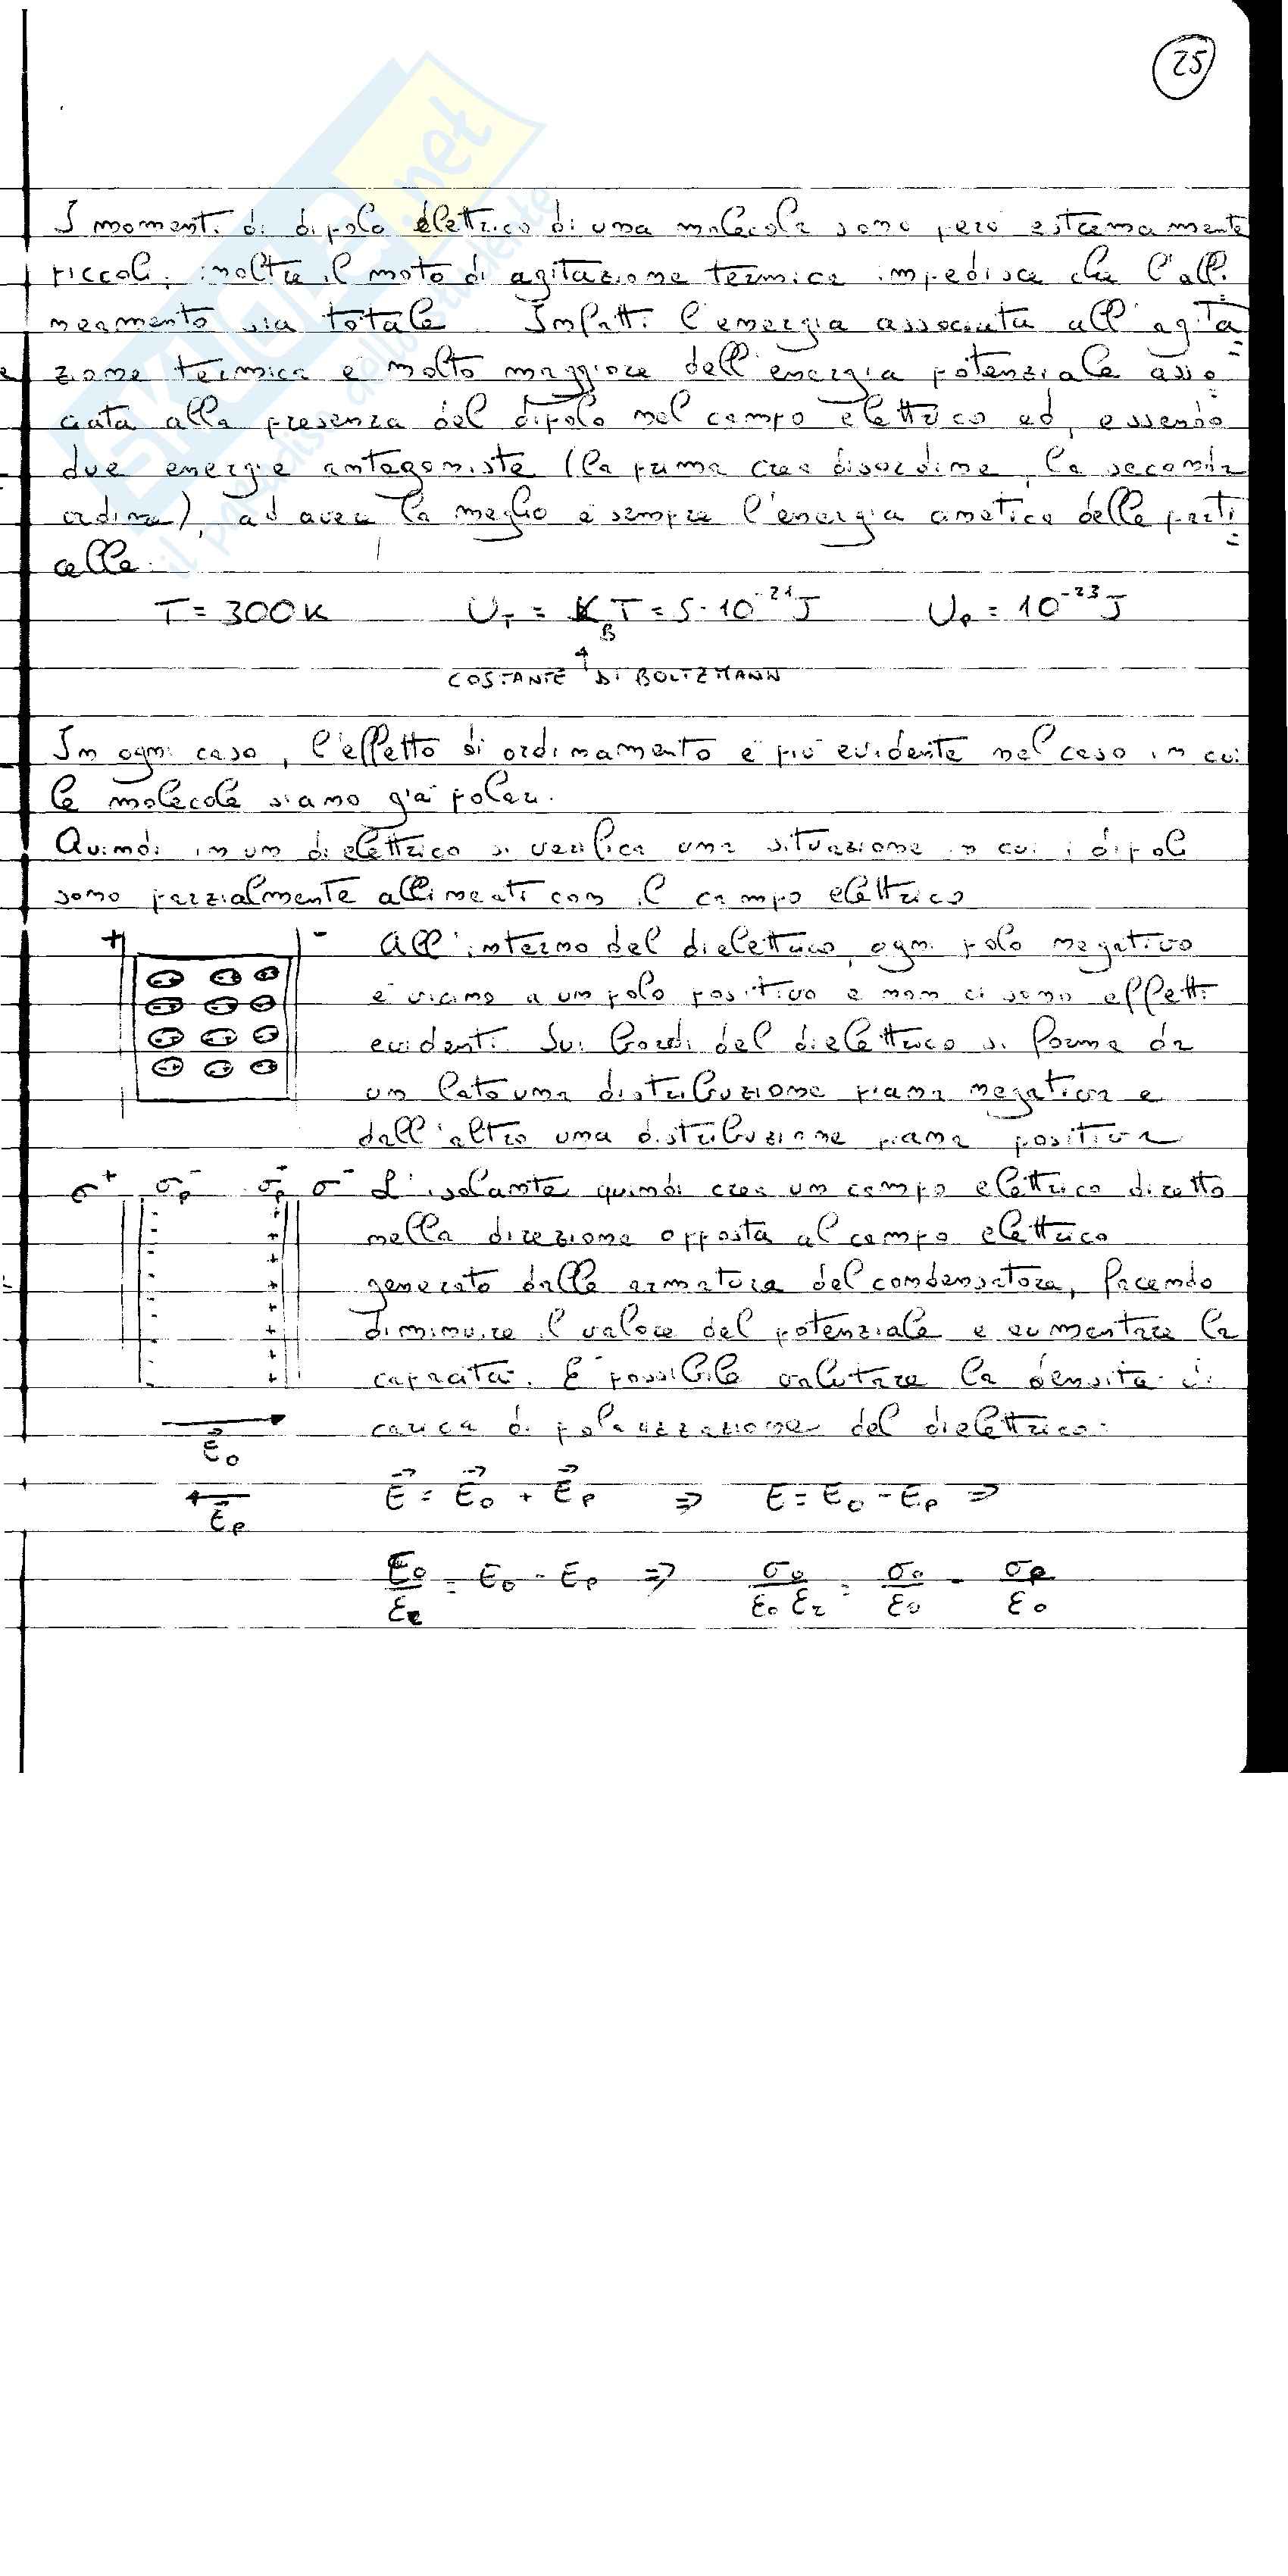 25
SKUOLA.net
il paradiso dello studente
I momenti di dipolo elettrico di una molecola sono però estremamente
piccoli; inoltre il moto di agitazione termica impedisce che l'alli
neamento sia totale. Infatti l'energia associata all'agita=
zione termica è molto maggiore dell'energia potenziale asso=
ciata alla presenza del dipolo nel campo elettrico ed, essendo
due energie antagoniste (la prima crea disordine, la seconda
ordine), ad avere la meglio è sempre l'energia cinetica delle parti=
celle.
T = 300K U_T = K_B T = 5·10^-21 J U_p = 10^-23 J
COSTANTE DI BOLTZMANN
In ogni caso, l'effetto di ordinamento è più evidente nel caso in cui
le molecole siano già polari.
Quindi in un dielettrico si verifica una situazione in cui i dipoli
sono parzialmente allineati con il campo elettrico
+ - All'interno del dielettrico, ogni polo negativo
è vicino a un polo positivo e non ci sono effetti
evidenti. Sui bordi del dielettrico si forma da
un lato una distribuzione piana negativa e
dall'altro una distribuzione piana positiva
σ+ σp- σp+ σ- L'isolante quindi crea un campo elettrico diretto
nella direzione opposta al campo elettrico
generato dalle armature del condensatore, facendo
diminuire il valore del potenziale e aumentare la
capacità. È possibile valutare la densità di
carica di polarizzazione del dielettrico:
E⃗0
E⃗p
E⃗ = E⃗0 + E⃗p ⇒ E = E0 - Ep ⇒
E0/εr = E0 - Ep ⇒ σ0/(ε0 εr) = σ0/ε0 - σp/ε0